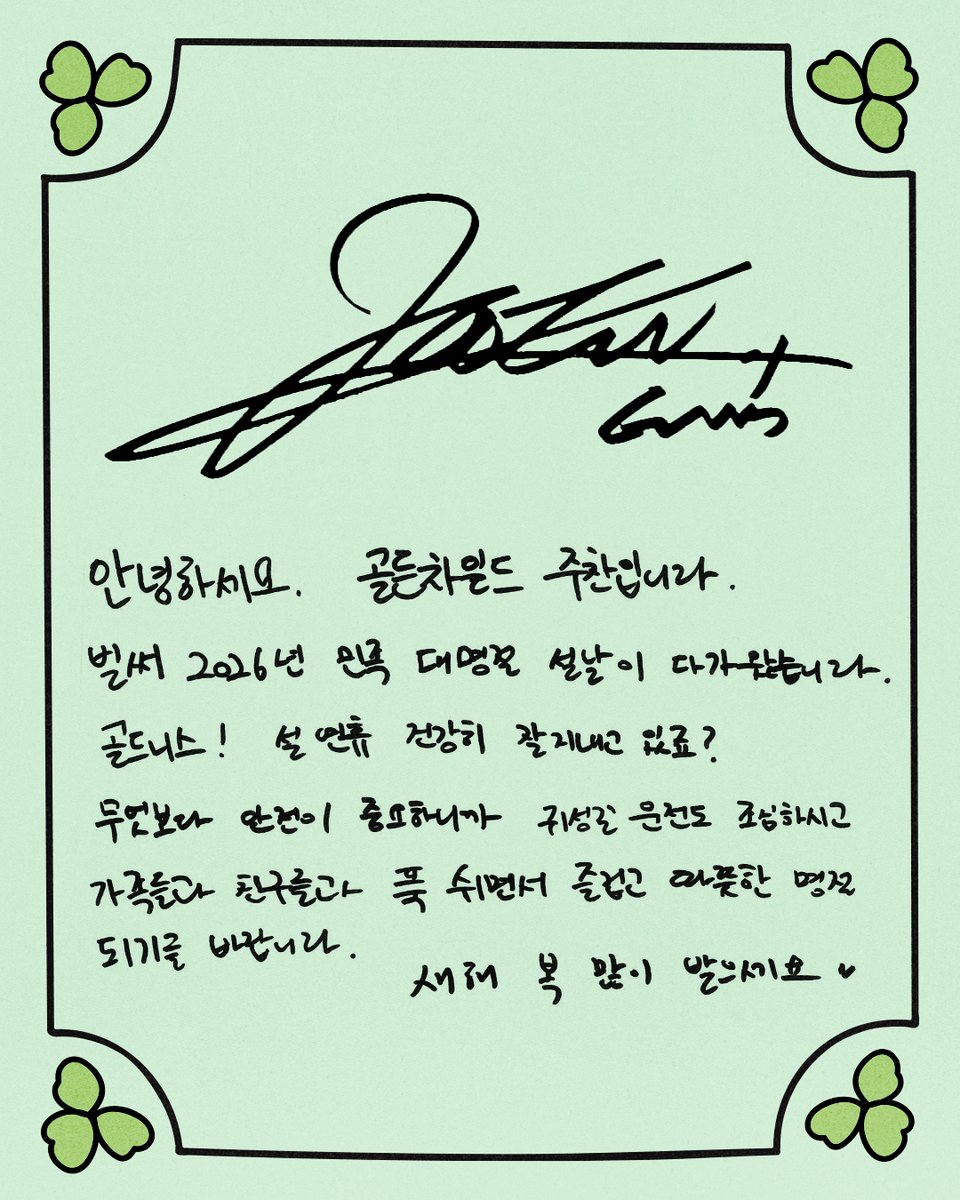 안녕하세요. 골든차일드 주찬입니다.
벌써 2026년 민족 대명절 설날이 다가왔습니다.
골드니스! 설 연휴 건강히 잘 지내고 있죠?
무엇보다 안전이 중요하니까 귀성길 운전도 조심하시고
가족들과 친구들과 푹 쉬면서 즐겁고 따뜻한 명절
되기를 바랍니다.
새해 복 많이 받으세요 ♥